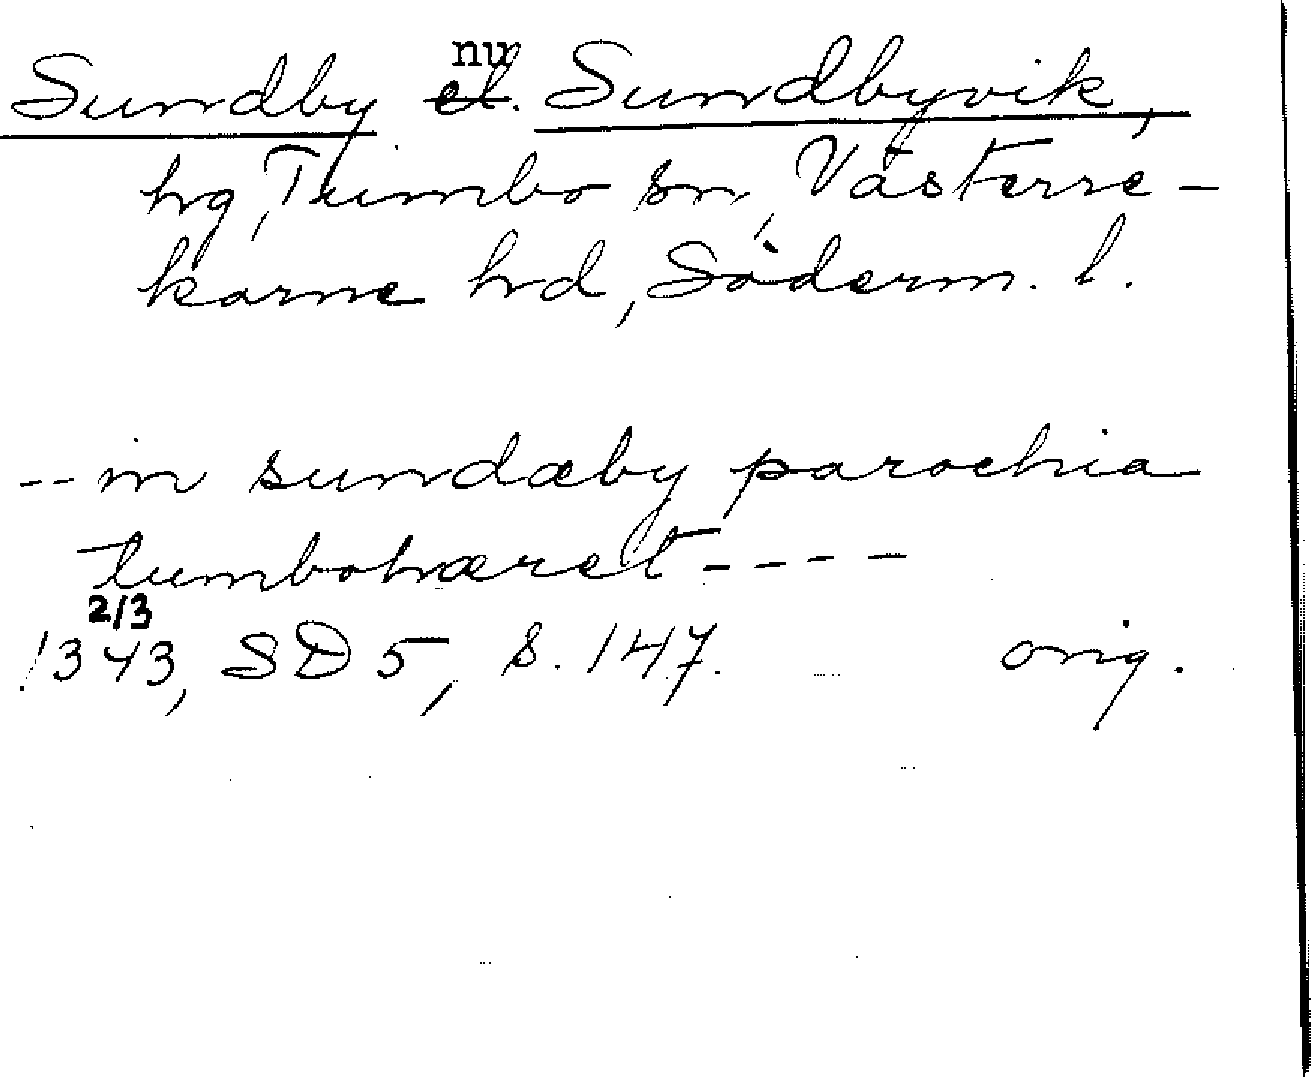 Sundby nu el. Sundbyvik,
hg, Tumbo sn, Västerre-
karne hd, Söderm. l.
-- in sundæby parochia
tumbohæret ----
2/3
1343, SD 5, s. 147. orig.